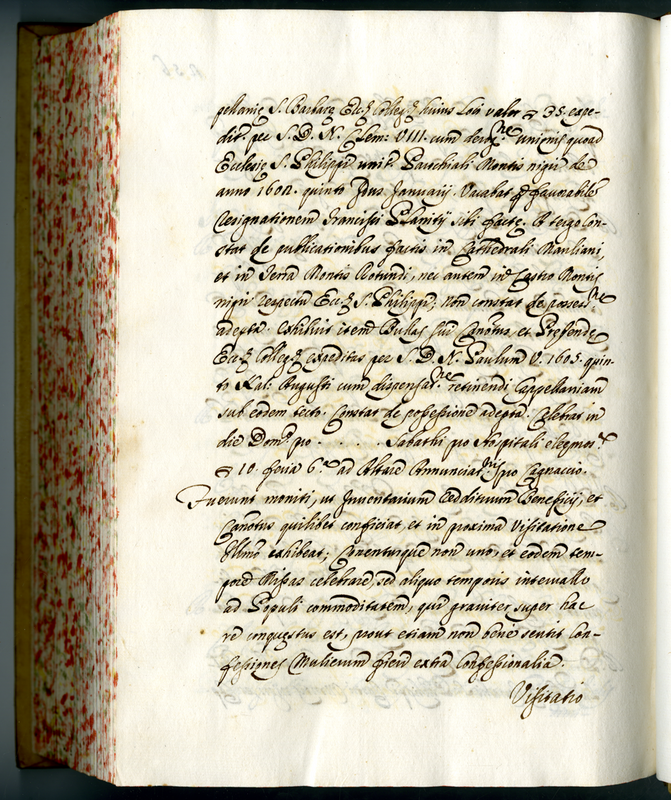 pellanię S. Barbarę Eccl. Colleg. huius Loci valor ∇ 35. expe-
dit. per S. D. N. Clem: VIII. cum derog.ne Unionis quoad
Ecclesię S. Philippi unit. Parochiali Montis nigri de
anno 1602. quinto Idus Januarij. Vacabat p favorabilem
resignationem Francisci sibi factę. A tergo Con-
stat de publicationibus factis in Cathedrali Manliani,
et in Terra Montis Rotundi, nec autem in Castro Montis
nigri respectu Eccl. S. Philippi; Non constat de possess.ne
adepta. exhibuit item Bullas sui Canõtus, et Prebendę
Eccl. Colleg. expeditas per S. D. N. Paulum V. 1605. quin-
to Kal: Augusti cum dispensat.ne retinendi Cappellaniam
sub eodem tecto. Constat de possessione adepta. Celebrat in
die Dom.co pro . . . . . Sabathi pro Hospitali eleemos.
∇ 10. feria 6.ta ad Altare Annunciat.nis pro Cagnaccio.
Fuerunt moniti, ut Inventarium reddituum Beneficij, et
Canõtus quilibet conficiat, et in proxima Visitatione
Illmo exhibeat; Conenturque non uno, et eodem tem-
pore Missas celebrare, sed aliquo temporis intervallo
ad Populi commoditatem, qui graviter super hac
re conquestus est, prout etiam non bene sentit Con-
fessiones Mulierum fieri extra Confessionalia.
Visitatio